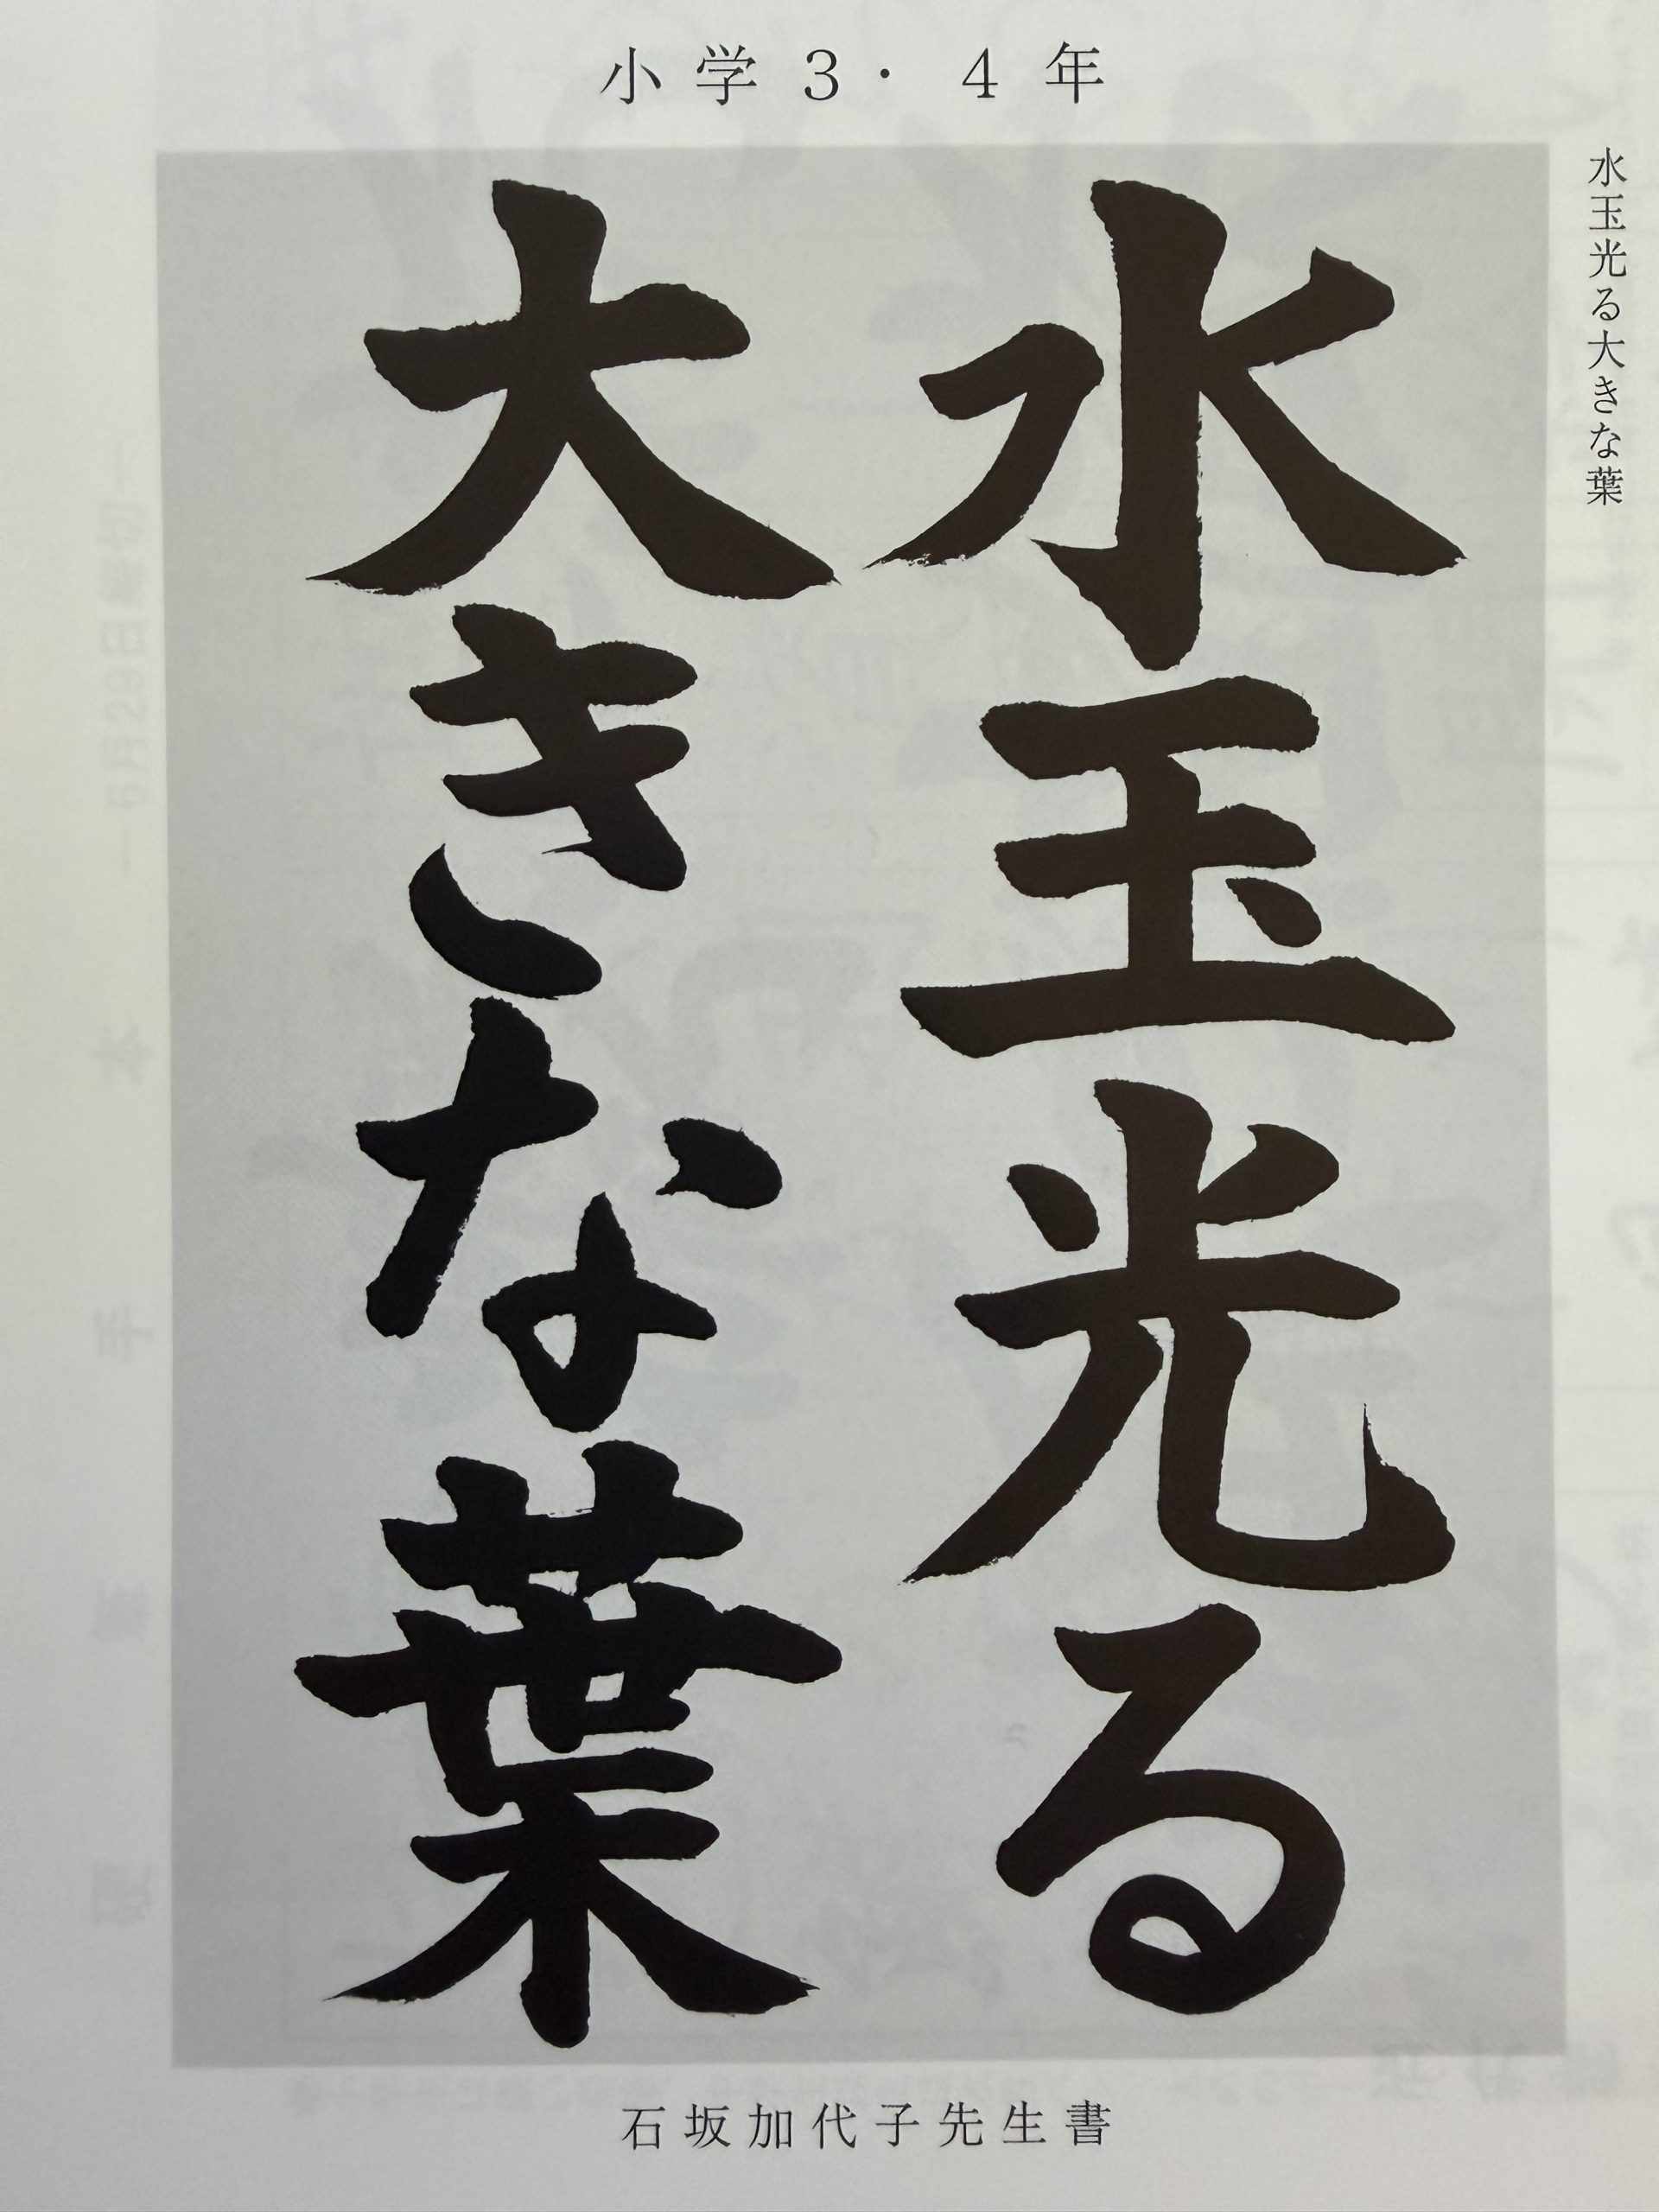 小学3・4年
水玉光る大きな葉
水玉光る
大きな葉
石坂加代子先生書